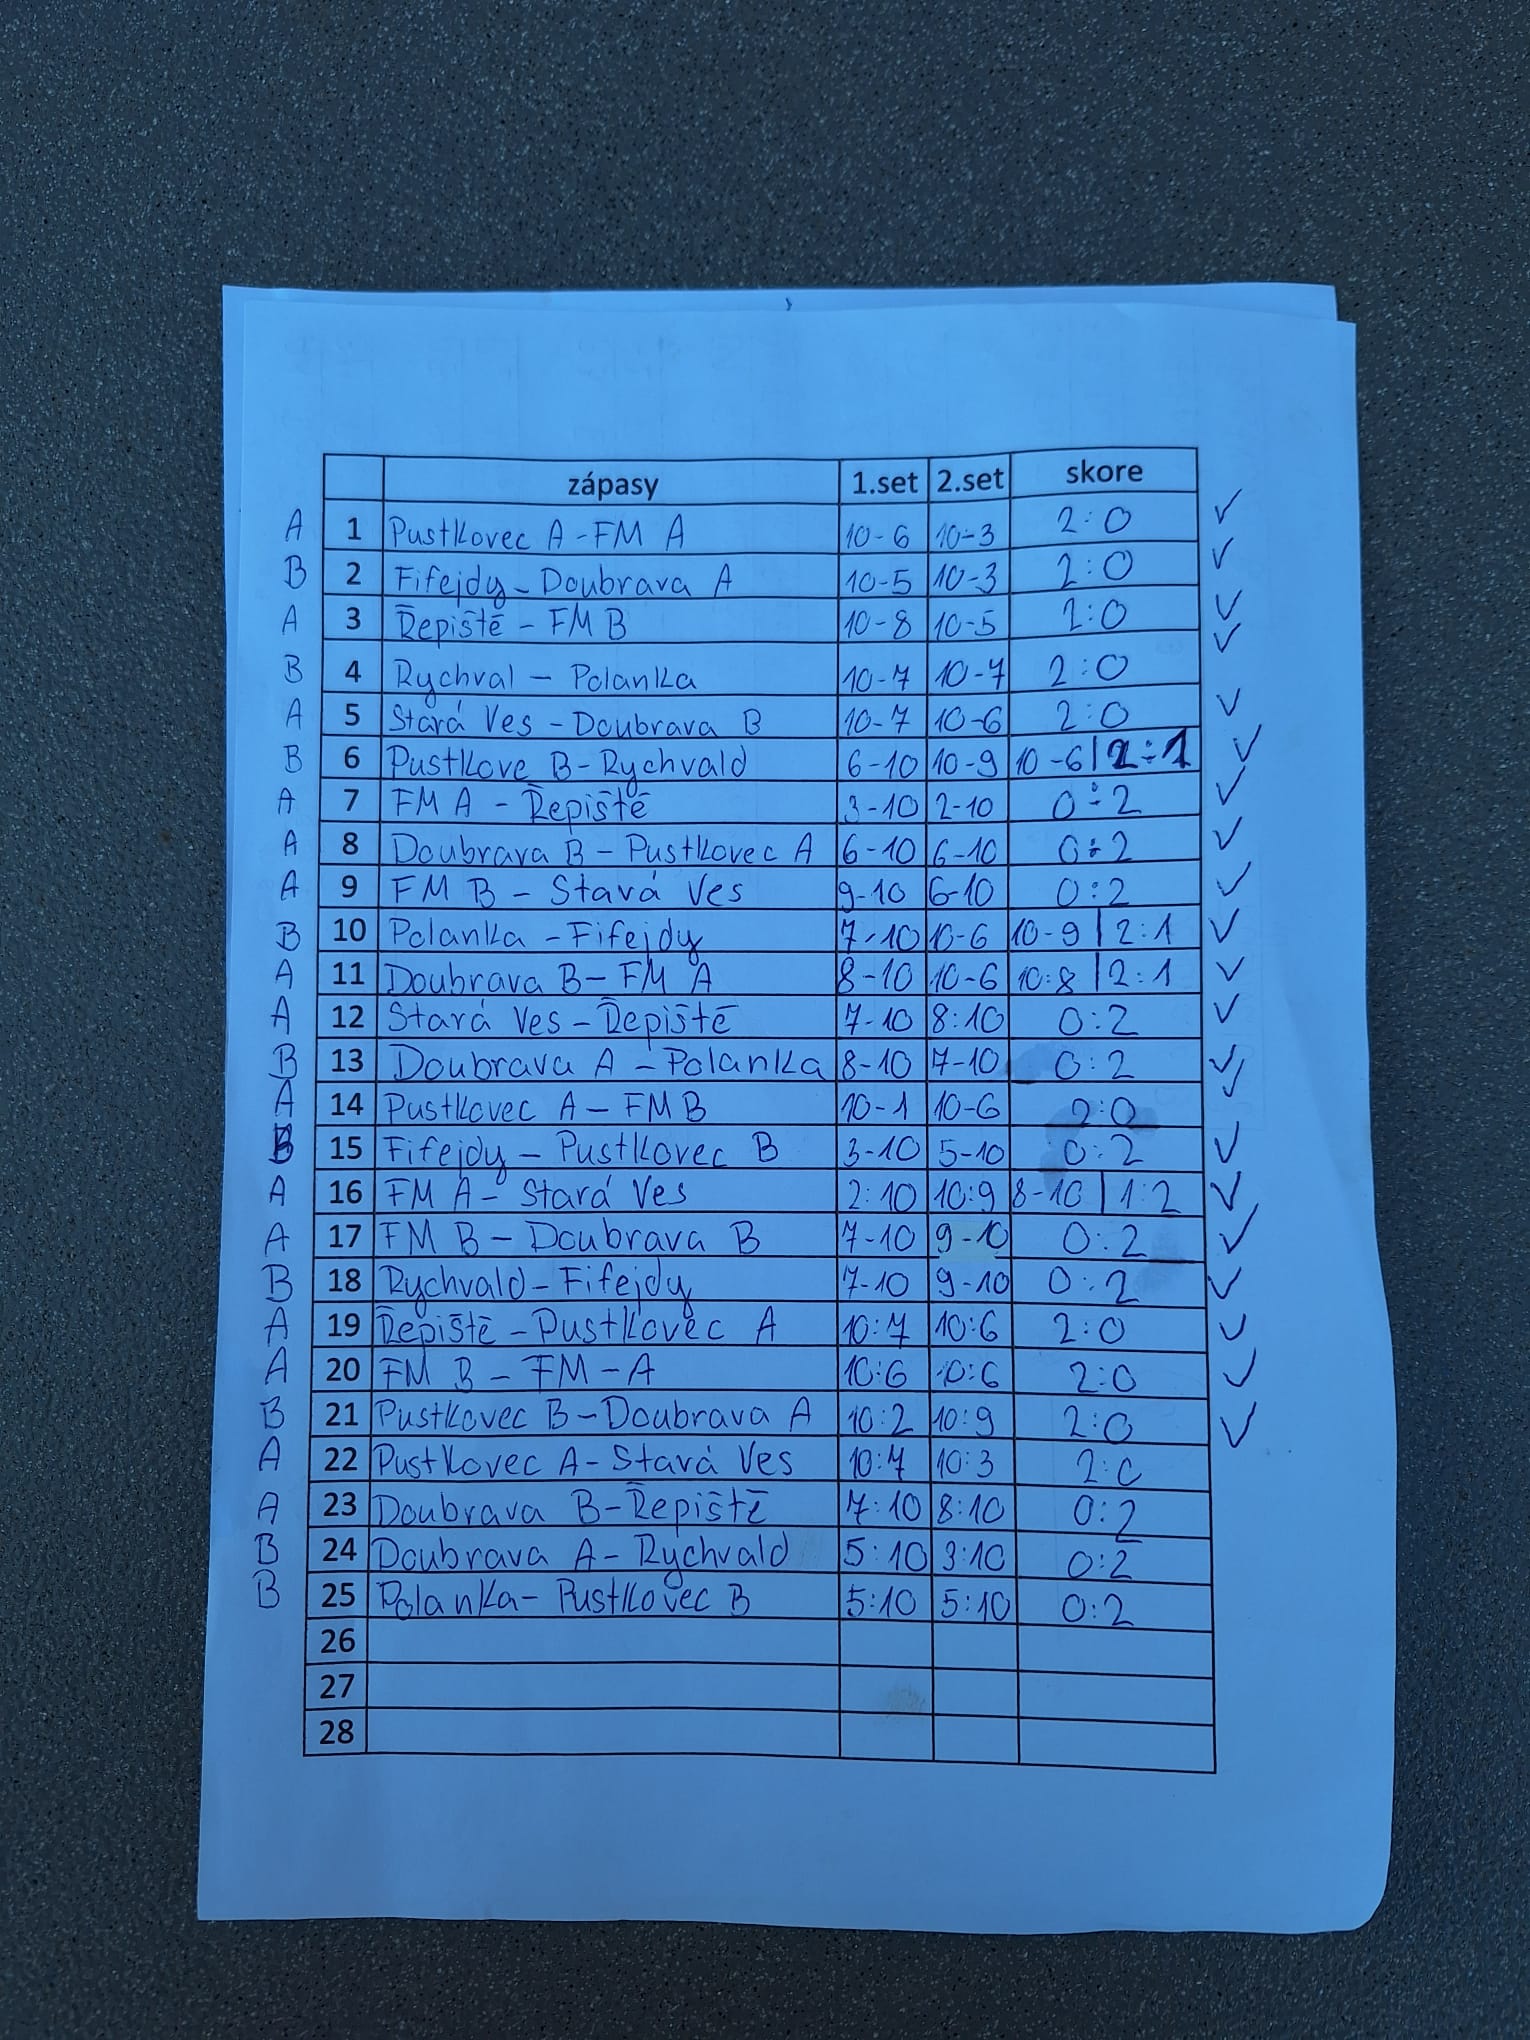 zápasy 1.set 2.set skore
A 1 Pustkovec A - FM A 10-6 10-3 2:0
B 2 Fifejdy - Doubrava A 10-5 10-3 2:0
A 3 Řepiště - FM B 10-8 10-5 2:0
B 4 Rychval - Polanka 10-7 10-7 2:0
A 5 Stará Ves - Doubrava B 10-7 10-6 2:0
B 6 Pustkove B - Rychvald 6-10 10-9 10-6 | 2:1
A 7 FM A - Řepiště 3-10 2-10 0:2
A 8 Doubrava B - Pustkovec A 6-10 6-10 0:2
A 9 FM B - Stará Ves 9-10 6-10 0:2
B 10 Polanka - Fifejdy 7-10 10-6 10-9 | 2:1
A 11 Doubrava B - FM A 8-10 10-6 10:8 | 2:1
A 12 Stará Ves - Řepiště 7-10 8:10 0:2
B 13 Doubrava A - Polanka 8-10 7-10 0:2
A 14 Pustkovec A - FM B 10-1 10-6 2:0
B 15 Fifejdy - Pustkovec B 3-10 5-10 0:2
A 16 FM A - Stará Ves 2:10 10:9 8-10 | 1:2
A 17 FM B - Doubrava B 7-10 9-10 0:2
B 18 Rychvald - Fifejdy 7-10 9-10 0:2
A 19 Řepiště - Pustkovec A 10:7 10:6 2:0
A 20 FM B - FM - A 10:6 10:6 2:0
B 21 Pustkovec B - Doubrava A 10:2 10:9 2:0
A 22 Pustkovec A - Stará Ves 10:7 10:3 2:0
A 23 Doubrava B - Řepiště 7:10 8:10 0:2
B 24 Doubrava A - Rychvald 5:10 3:10 0:2
B 25 Polanka - Pustkovec B 5:10 5:10 0:2
26
27
28